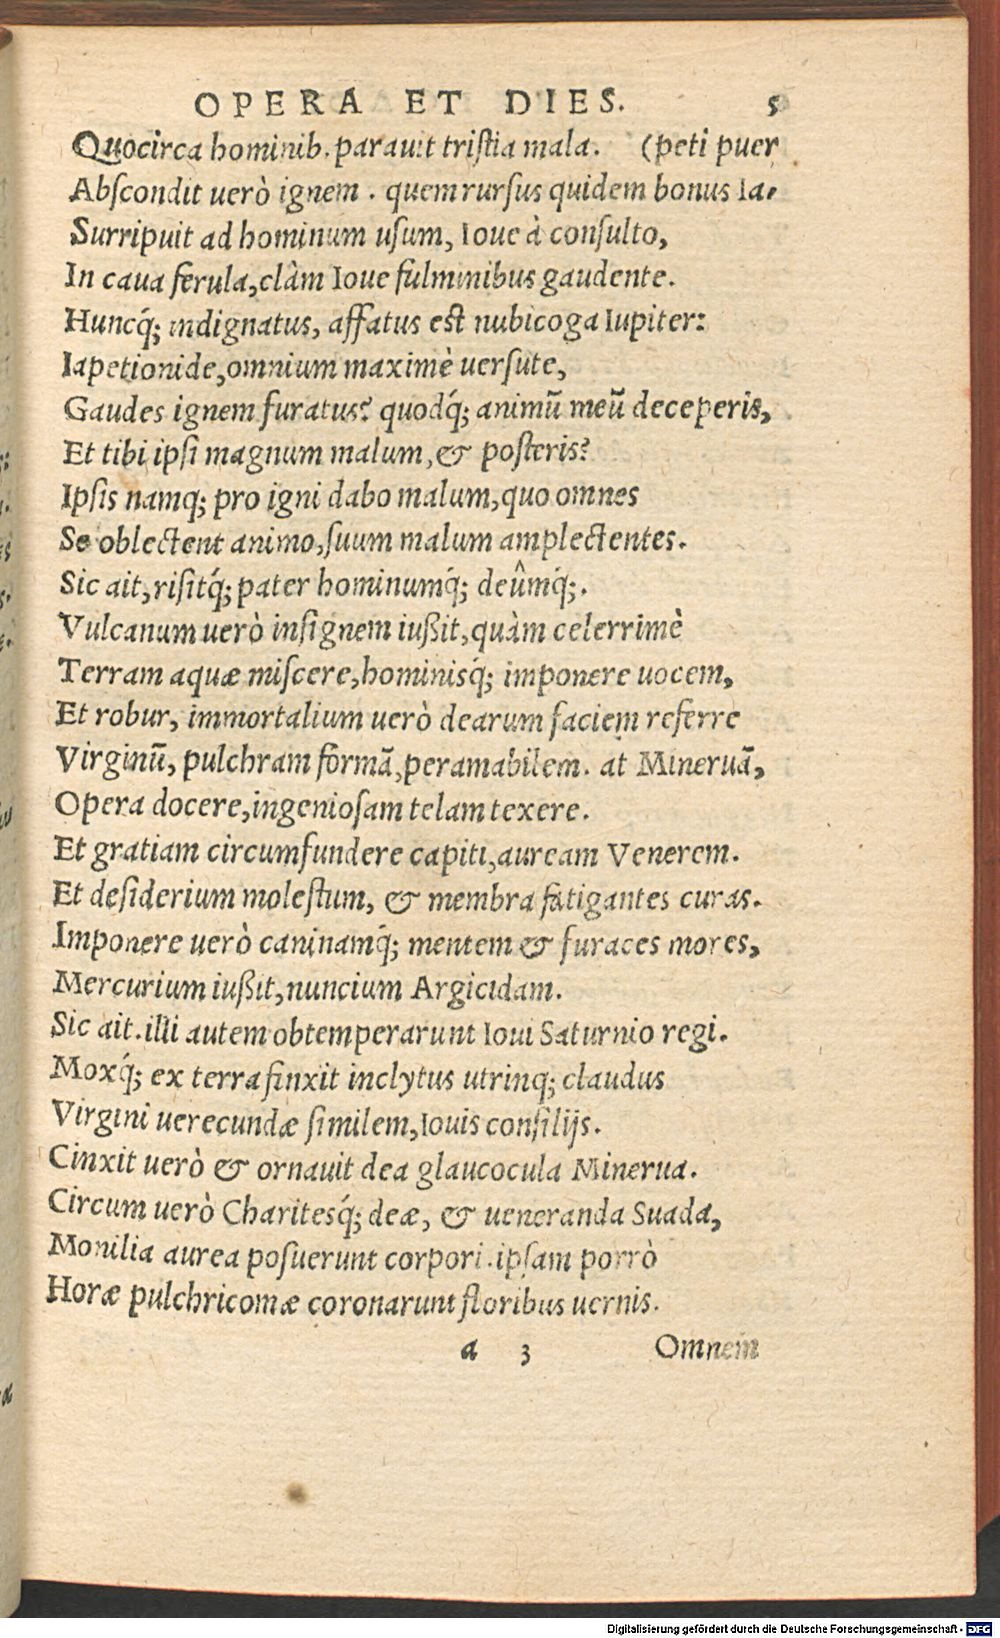 OPERA ET DIES. 5
Quocirca hominib. parauit tristia mala. (peti puer
Abſcondit uerò ignem. quem rurſus quidem bonus Ia-
Surripuit ad hominum uſum, Ioue à conſulto,
In caua ferula, clàm Ioue fulminibus gaudente.
Huncq́; indignatus, affatus est nubicoga Iupiter:
Iapetionide, omnium maximè uerſute,
Gaudes ignem furatus? quodq́; animũ meũ deceperis,
Et tibi ipſi magnum malum, & poſteris?
Ipſis namq; pro igni dabo malum, quo omnes
Se oblectent animo, ſuum malum amplectentes.
Sic ait, riſitq́; pater hominumq́; deûmq́;.
Vulcanum uerò inſignem iußit, quàm celerrimè
Terram aquæ miſcere, hominisq́; imponere uocem,
Et robur, immortalium uerò dearum faciem referre
Virginũ, pulchram formã, peramabilem. at Mineruã,
Opera docere, ingenioſam telam texere.
Et gratiam circumfundere capiti, auream Venerem.
Et deſiderium moleſtum, & membra fatigantes curas.
Imponere uerò caninamq́; mentem & furaces mores,
Mercurium iußit, nuncium Argicidam.
Sic ait. illi autem obtemperarunt Ioui Saturnio regi.
Moxq́; ex terra finxit inclytus utrinq; claudus
Virgini uerecundæ ſimilem, Iouis conſilijs.
Cinxit uerò & ornauit dea glaucocula Minerua.
Circum uerò Charitesq́; deæ, & ueneranda Suada,
Monilia aurea poſuerunt corpori. ipſam porrò
Horæ pulchricomæ coronarunt floribus uernis.
a 3 Omnem
Digitalisierung gefördert durch die Deutsche Forschungsgemeinschaft - DFG